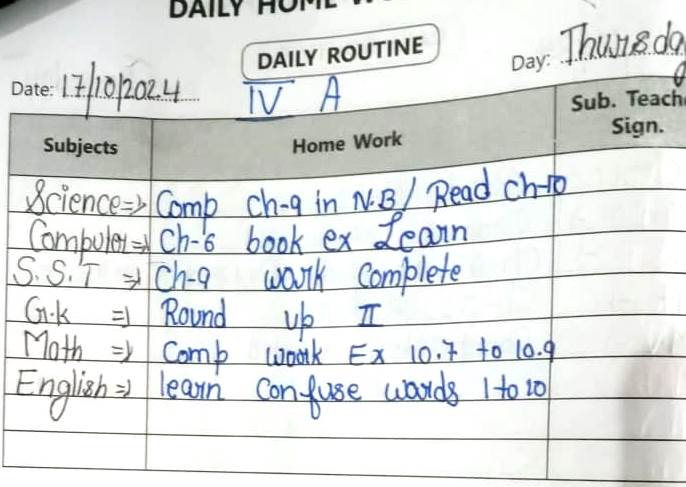 DAILY HOME WO
DAILY ROUTINE
Date: 17/10/2024 IV A Day: Thursda
Subjects Home Work Sub. Teach Sign.
Science=> Comp Ch-9 in N.B/ Read Ch-10
Computer=> Ch-6 book ex Learn
S.S.T => Ch-9 work Complete
G.k => Round up II
Math => Comp work Ex 10.7 to 10.9
English=> learn Confuse words 1 to 20